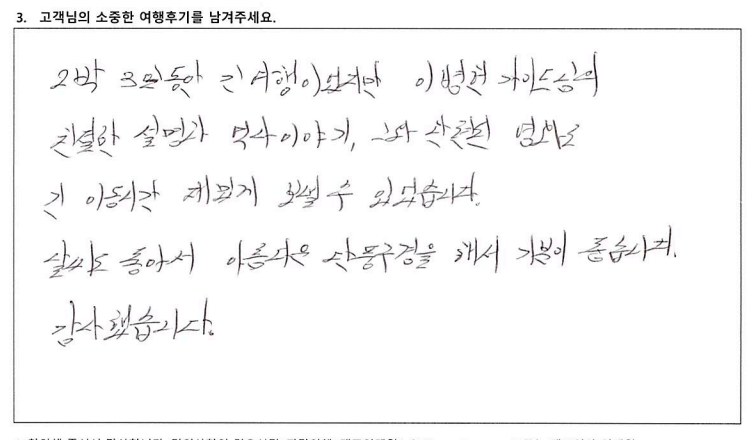 3. 고객님의 소중한 여행후기를 남겨주세요.
2박 3일동안 긴 여행이었지만 이병현 가이드님의
친절한 설명과 역사이야기, 그와 관련된 영화로
긴 이동시간 재밌게 보낼 수 있었습니다.
날씨도 좋아서 아름다운 단풍구경을 해서 기분이 좋습니다.
감사했습니다.